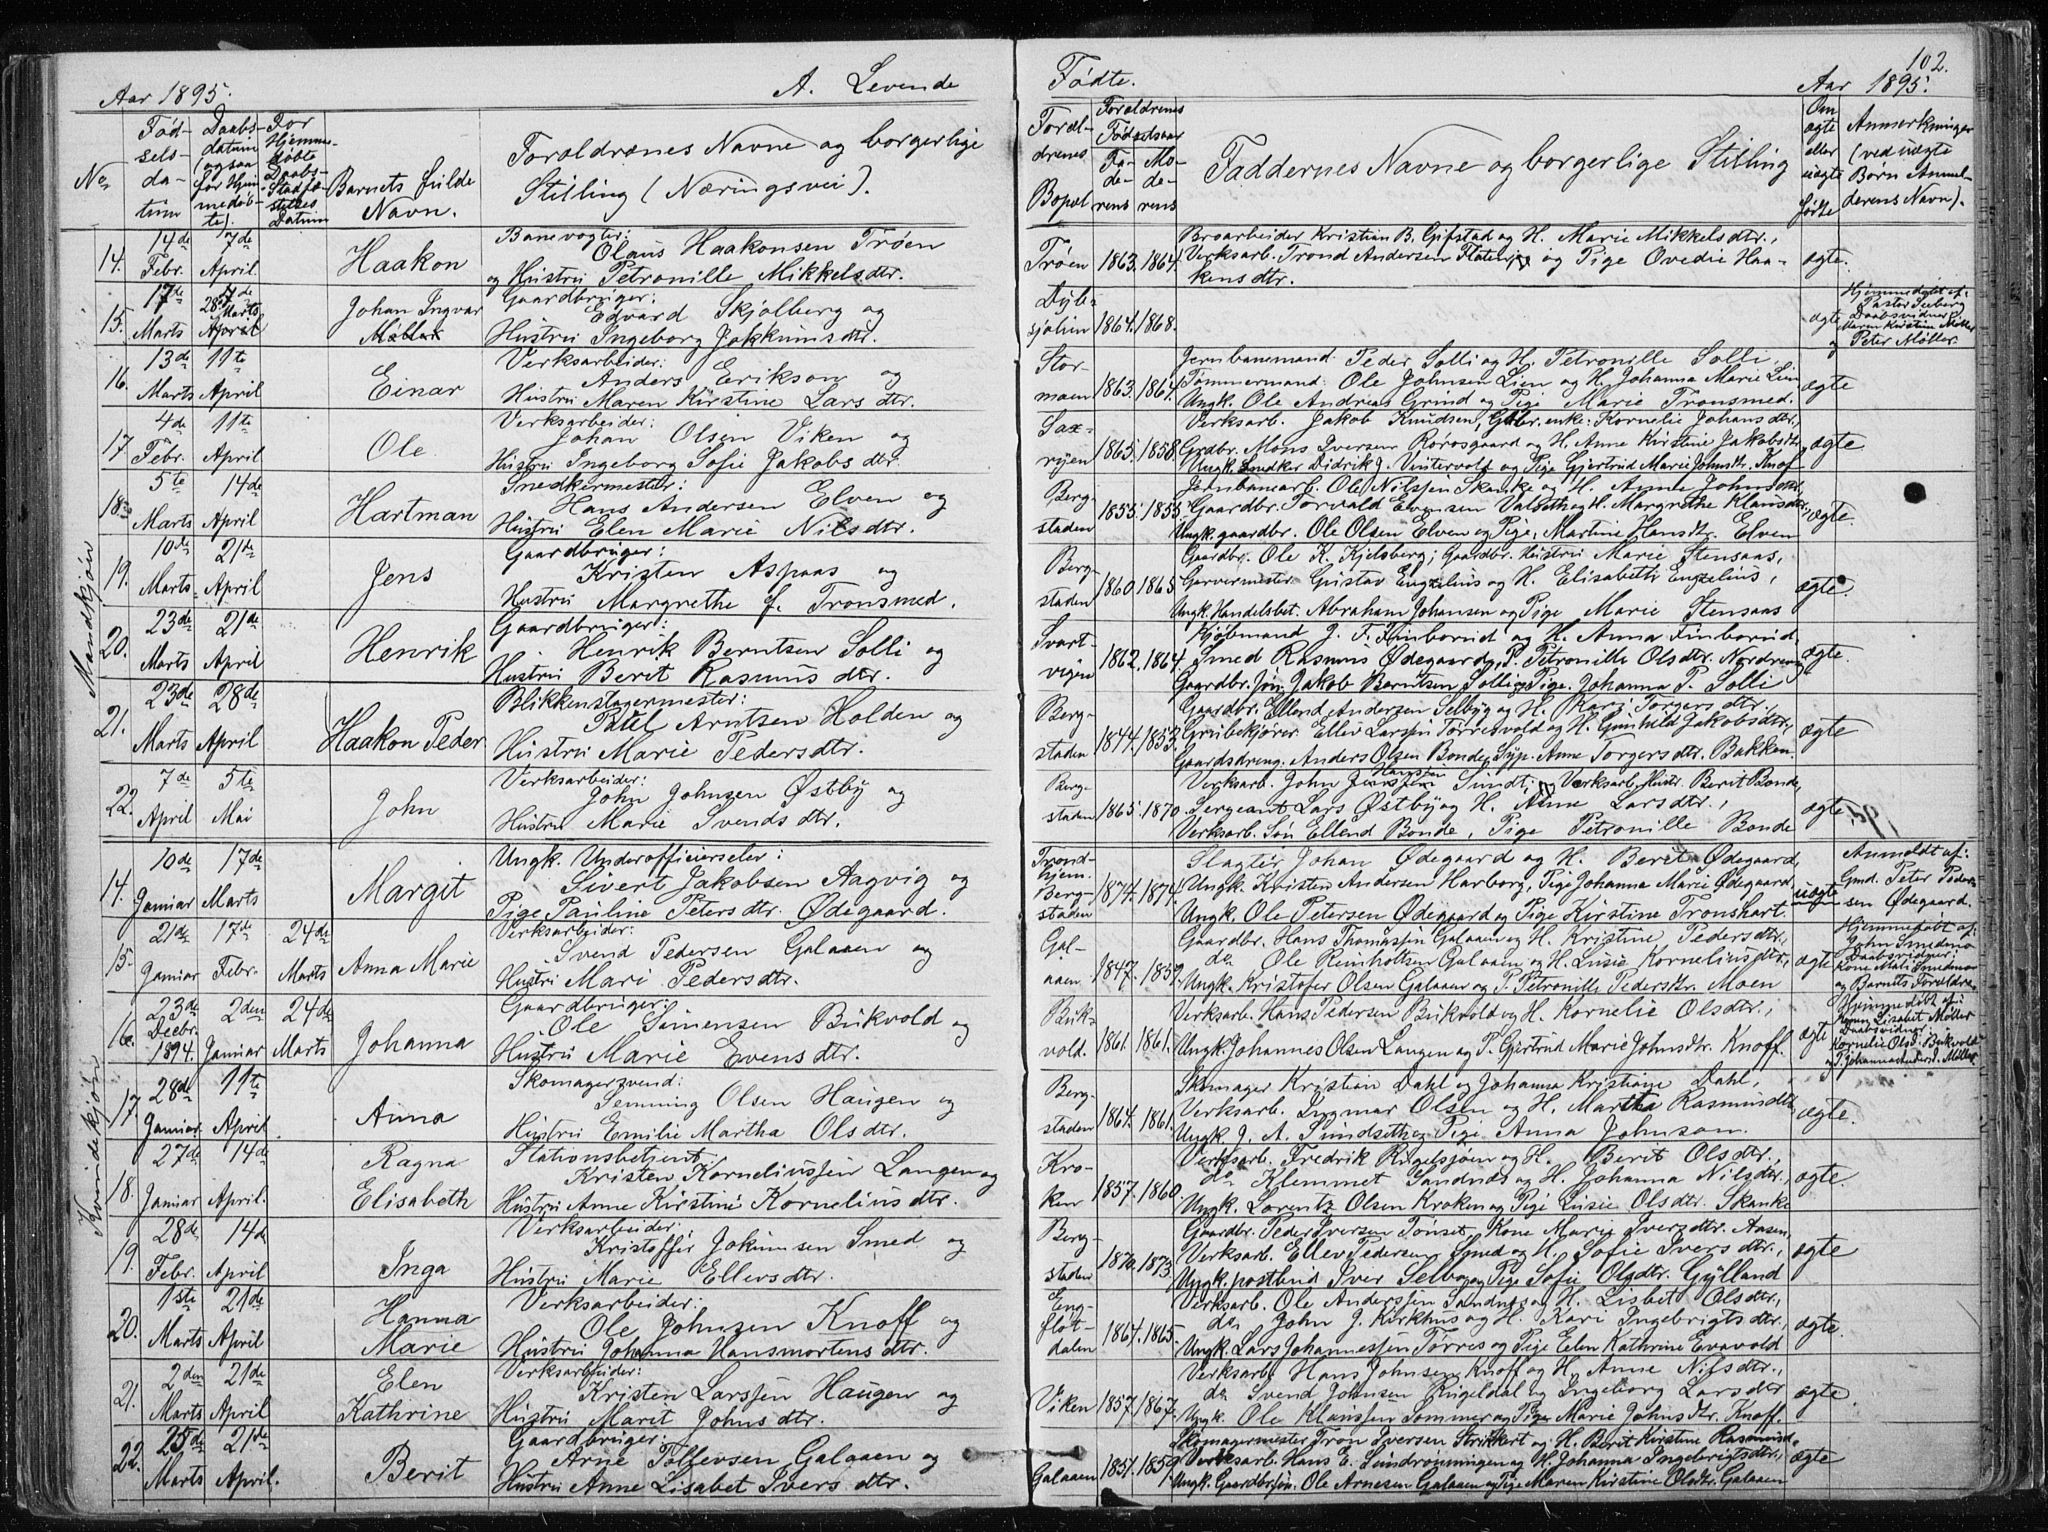 Aar 1895.
A. Levende
No.
Fødselsdatum
Daabsdatum (ogsaa for Hjemmedøbte).
For Hjemmedøbte Daabs-Stadfæstelses Datum
Barnets fulde Navn.
Forældrenes Navne og borgerlige
Stilling (Næringsvei).
Mandkjøn
14. 14de Febr. 7de April. Haakon
Banevogter:
Olaus Haakonsen Trøen
og Hustru Petronille Mikkelsdtr.
15. 17de Marts 28de Marts Johan Ingvar
Gaardbruger:
Edvard Skjølberg og
Hustru Ingeborg Jokkumsdtr.
16. 13de Marts 11te April Einar
Verksarbeider:
Anders Erikson og
Hustru Maren Kirstine Larsdtr.
17. 4de Febr. 11te April Ole
Verksarbeider:
Johan Olsen Viken og
Hustru Ingeborg Sofie Jakobsdtr.
18. 5te Marts 14de April Hartman
Snedkermester:
Hans Andersen Elven og
Hustru Elen Marie Nilsdtr.
19. 10de Marts 21de April Jens
Gaardbruger:
Kristen Aspaas og
Hustru Margrethe J. Tronsmed.
20. 23de Marts 21de April Henrik
Gaardbruger:
Henrik Berntsen Solli og
Hustru Berit Rasmusdtr.
21. 23de Marts 28de April Haakon Peder
Blikkenslagermester:
Paul Arntsen Holden og
Hustru Marie Pedersdtr.
22. 7de April 5te Mai John
Verksarbeider:
John Johnsen Østby og
Hustru Marie Svendsdtr.
Kvindekjøn
14. 10de Januar 17de Marts Margit
Ungk. Underofficierselev:
Sivert Jakobsen Aagvig og
Pige Pauline Petersdtr. Ødegaard.
15. 21de Januar 17de Febr. 24de Marts Anna Marie
Verksarbeider:
Svend Pedersen Galaaen og
Hustru Mari Pedersdtr.
16. 23de Decbr. 1894. 2den Januar 24de Marts Johanna
Gaardbruger:
Ole Simensen Bukvold og
Hustru Marie Evensdtr.
17. 28de Januar 11te April. Anna
Skomagersvend:
Semming Olsen Haugen og
Hustru Emilie Martha Olsdtr.
18. 27de Januar 14de April. Ragna Elisabeth
Stationsbetjent:
Kristen Korneliussen Langen og
Hustru Anne Kirstine Korneliusdtr.
19. 28de Febr. 14de April Inga
Verksarbeider:
Kristoffer Jokumsen Smed og
Hustru Marie Ellersdtr.
20. 1ste Marts 21de April Hanna Marie
Verksarbeider:
Ole Johnsen Knoff og
Hustru Johanna Hansmortensdtr.
21. 2den Marts 21de April Elen Kathrine
Verksarbeider:
Kristen Larssen Haugen og
Hustru Marit Johnsdtr.
22. 25de Marts 21de April. Berit
Gaardbruger:
Arne Tollevsen Galaaen og
Hustru Anne Lisabet Iversdtr.
102.
Fødte.
Aar 1895.
Forældrenes Bopæl
Forældrenes Fødselsaar
Faderens Moderens
Faddernes Navne og borgerlige Stilling
Om ægte eller uægte fødte
Anmerkninger (ved uægte Børn Anmelderens Navn).
Trøen 1863. 1864.
Broarbeider Kristian B. Gifstad og H. Marie Mikkelsdtr.,
Verksarb. Trond Andersen Flaten og Pige Ovedie Haakensdtr.
ægte.
1864. 1868. ægte
Hjemmedøbt af: Pastor Seeberg Daabsvidner: Maren Kirstine Møller og Peter Møller.
Stormoen 1863. 1864.
Jernbanemand Peder Solli og H. Petronille Solli,
Tømmermand: Ole Johnsen Lien og H. Johanna Marie Lien
Ungk. Ole Andreas Grind og Pige Marie Tronsmed.
ægte
1865. 1858.
Verksarb. Jakob Knudsen, Gdbr. enke: Kornelie Johansdtr,
Grdbr. Mons Iversen Rørosgaard og H. Anne Kirstine Jakobsdtr
Ungk. Snedker Didrik J. Vintervold og Pige Gjertrud Marie Johnsdtr. Knof
ægte
Bergstaden 1855. 1855.
Jernbanearb. Ole Nilssen Skanke og H. Anne Johnsdtr,
Gaardbr. Torvald Evensen Valset og H. Margrethe Klausdtr,
Ungk. gaardbr. Ole Olsen Elven og Pige, Martine Hansdtr. Elven
ægte.
Bergstaden 1860. 1865
Gaardbr. Ole K. Kjelsberg; Gaardbr. Hustru Marie Stensaas,
Garvermester Gustav Engzelius og H. Elisabeth Engzelius,
Ungk. Handelsbet. Abraham Johansen og Pige Marie Stensaas
ægte.
Svartvigen 1862. 1864
Kjøbmand J. T. Finborud og H. Anna Finborud,
Smed Rasmus Ødegaard, P. Petronille Olsdtr.
Gaardbr. Søn Jakob Berntsen Solli og Pige Johanna P. Solli
ægte.
Bergstaden 1844. 1853.
Gaardbr. Ellend Andersen Selbyg og H. Kari Torgersdtr.
Grubekjører Ellev Larssen Torresvold og H. Gunhild Jakobsdtr.,
Gaardsdreng. Anders Olsen Bonde, Syp. Anne Torgersdtr. Bakken.
ægte
Bergstaden 1865. 1870.
Verksarb. John Hanssen Sundt; Verksarb. Hustr. Berit Bonde,
Sergeant Lars Østby og H. Anne Larsdtr.,
Verksarb. Søn Ellend Bonde, Pige Petronille Bonde
ægte,
Trondhjem. Bergstaden 1874. 1874.
Slagter Johan Ødegaard og H. Berit Ødegaard,
Ungk. Kristen Andersen Harborg, Pige Johanna Marie Ødegaard
Ungk. Ole Petersen Ødegaard og Pige Kirstine Tronshart.
uægte
Anmeldt af: Gmd. Peter Pedersen Ødegaard.
Galaaen 1847. 1857.
Gaardbr. Hans Thomassen Galaaen og H. Kristine Pedersdtr.,
do. Ole Reinholtsen Galaaen og H. Lusie Korneliusdtr,
Ungk. Kristofer Olsen Galaaen og P. Petronille Pedersdtr. Moen
ægte
Hjemmedøbt af: John Smedmo Daabsvidner: Kone Mali Smedmo og Barnets Forældre.
Bukvold. 1861. 1861.
Verksarb. Hans Pedersen Bukvold og H. Kornelie Olsdtr.,
Ungk. Johannes Olsen Langen og P. Gjertrud Marie Johnsdtr. Knoff.
ægte
Hjemmedøbt af: Lisabet Møller Daabsvidner: Kornelie Olsd. Bukvold og P. Johanna Andersd. Møller.
Bergstaden 1864. 1861.
Skomager Kristian Dahl og Johanna Kristiane Dahl,
Verksarb. Ingmar Olsen og H. Martha Rasmusdtr,
Ungk. J. A. Sundseth og Pige Anna Johnson.
ægte.
Kroken 1857. 1860.
Verksarb. Fredrik Rugelsjøen og H. Berit Olsdtr.,
do. Klemmet Sandnes og H. Johanna Nilsdtr.
Ungk. Lorentz Olsen Kroken og Pige Lusie Olsdtr. Skanke
ægte.
Bergstaden 1870. 1873.
Gaardbr. Peder Iversen Tønset, Kone Marie Iversdtr. Aasen
Verksarb. Ellev Pedersen Smed og H. Sofie Iversdtr.,
Ungk. postbud Iver Selbo og Pige Sofie Olsdtr. Gylland
ægte
Engflotdalen 1864. 1865.
Verksarb. Ole Anderssen Sandnes og H. Lisbet Olsdtr.,
do. John J. Kirkhus og H. Kari Ingebrigtsdtr,
Ungk. Lars Johannessen Torres og Pige Elen Kathrine Evavold
ægte.
Viken 1857. 1867.
Verksarb. Hans Johnsen Knoff og H. Anne Nilsdtr.,
do. Svend Johnsen Rugeldal og Ingeborg Larsdtr
Ungk. Ole Klaussen Sommer og Pige Marie Johnsdtr. Knoff.
ægte.
Galaaen 1851. 1859.
Skomagermester Tron Iversen Strikkert og H. Berit Kirstine Rasmusd.,
Verksarb. Hans E. Sundronningen og H. Johanna Ingebrigtsdtr.,
Ungk. Gaardbrsøn. Ole Arnesen Galaaen og Pige Maren Kirstine Olsdtr. Galaaen
ægte